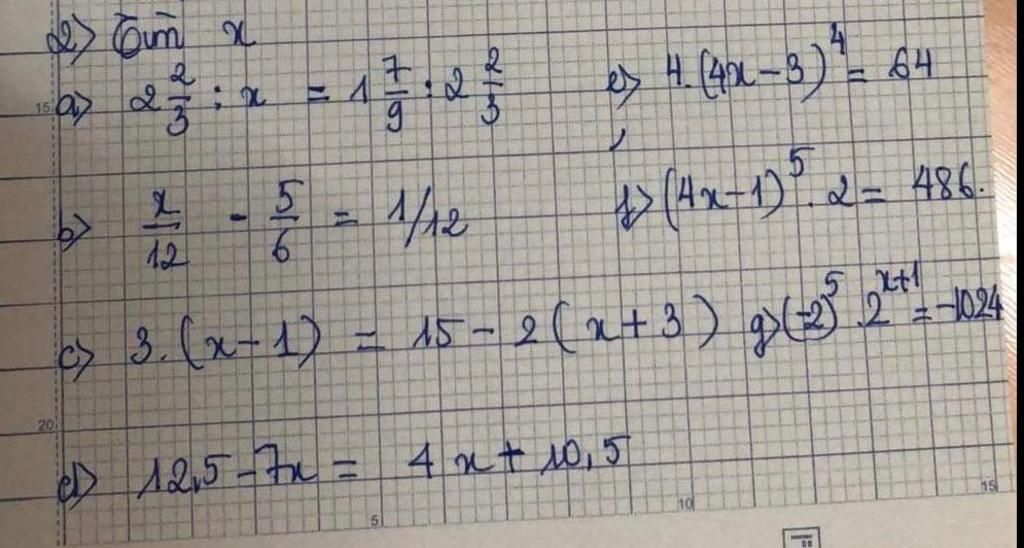 2) Tìm x
a) 2 2/3 : x = 1 7/9 : 2 2/3
e) 4.(4x-3)^4 = 64
b) x/12 - 5/6 = 1/12
f) (4x-1)^5 . 2 = 486.
c) 3.(x-1) = 15 - 2(x+3)
g) (-2)^5 . 2^(x+1) = -1024
d) 12,5 - 7x = 4x + 10,5
15
20
5
10
15